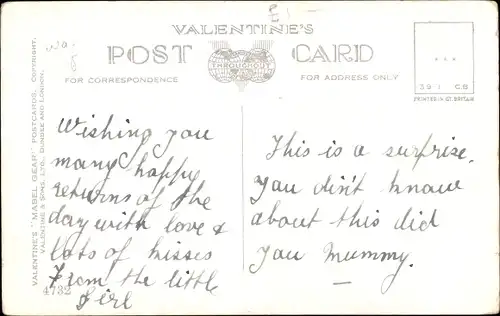 VALENTINE'S
POST CARD
THROUGHOUT
FOR CORRESPONDENCE
FOR ADDRESS ONLY
PRINTED IN GT. BRITAIN
VALENTINE'S "MABEL GEAR" POSTCARDS. COPYRIGHT.
VALENTINE & SONS, LTD., DUNDEE AND LONDON.
4732
Wishing you
many happy
returns of the
day with love &
lots of kisses
From the little
girl
This is a surprise.
you din't know
about this did
you Mummy.